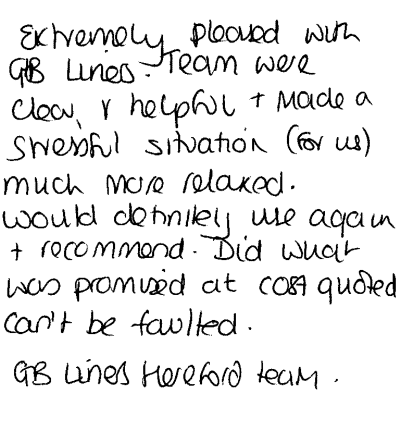 Extremely pleased with
GB Lines. Team were
clear, & helpful + made a
stressful situation (for us)
much more relaxed.
would definitely use again
+ recommend. Did what
was promised at cost quoted
can't be faulted.
GB Lines Hereford team.